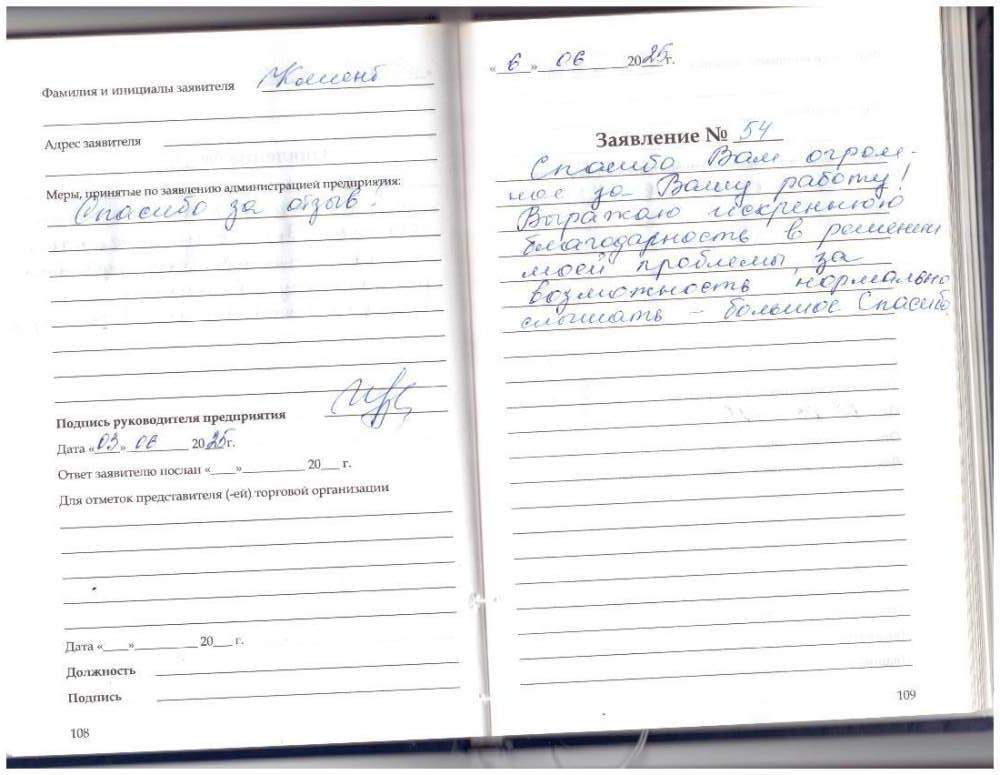 Фамилия и инициалы заявителя Клиент
Адрес заявителя
Меры, принятые по заявлению администрацией предприятия:
Спасибо за отзыв.
Подпись руководителя предприятия
Дата «03» 06 2025г.
Ответ заявителю послан «____»__________ 20___ г.
Для отметок представителя (-ей) торговой организации
Дата «____»__________ 20___ г.
Должность
Подпись
108
«6» 06 2025г.
Заявление № 54
Спасибо Вам огром-
ное за Вашу работу!
Выражаю искреннюю
благодарность в решении
моей проблемы, за
возможность нормально
слышать – большое Спасибо
109